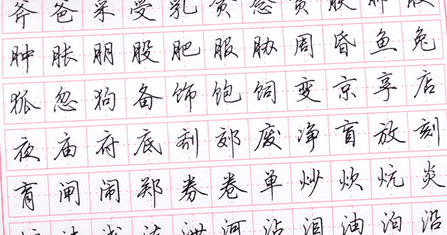 斧爸采受乳贪念贫肤肺肢
肿胀朋股肥服胁周昏鱼兔
狐忽狗备饰饱饲变京享店
夜庙府底剂郊废净盲放刻
育闸闹郑券卷单炒炊炕炎
泄河沾泪油泊沿